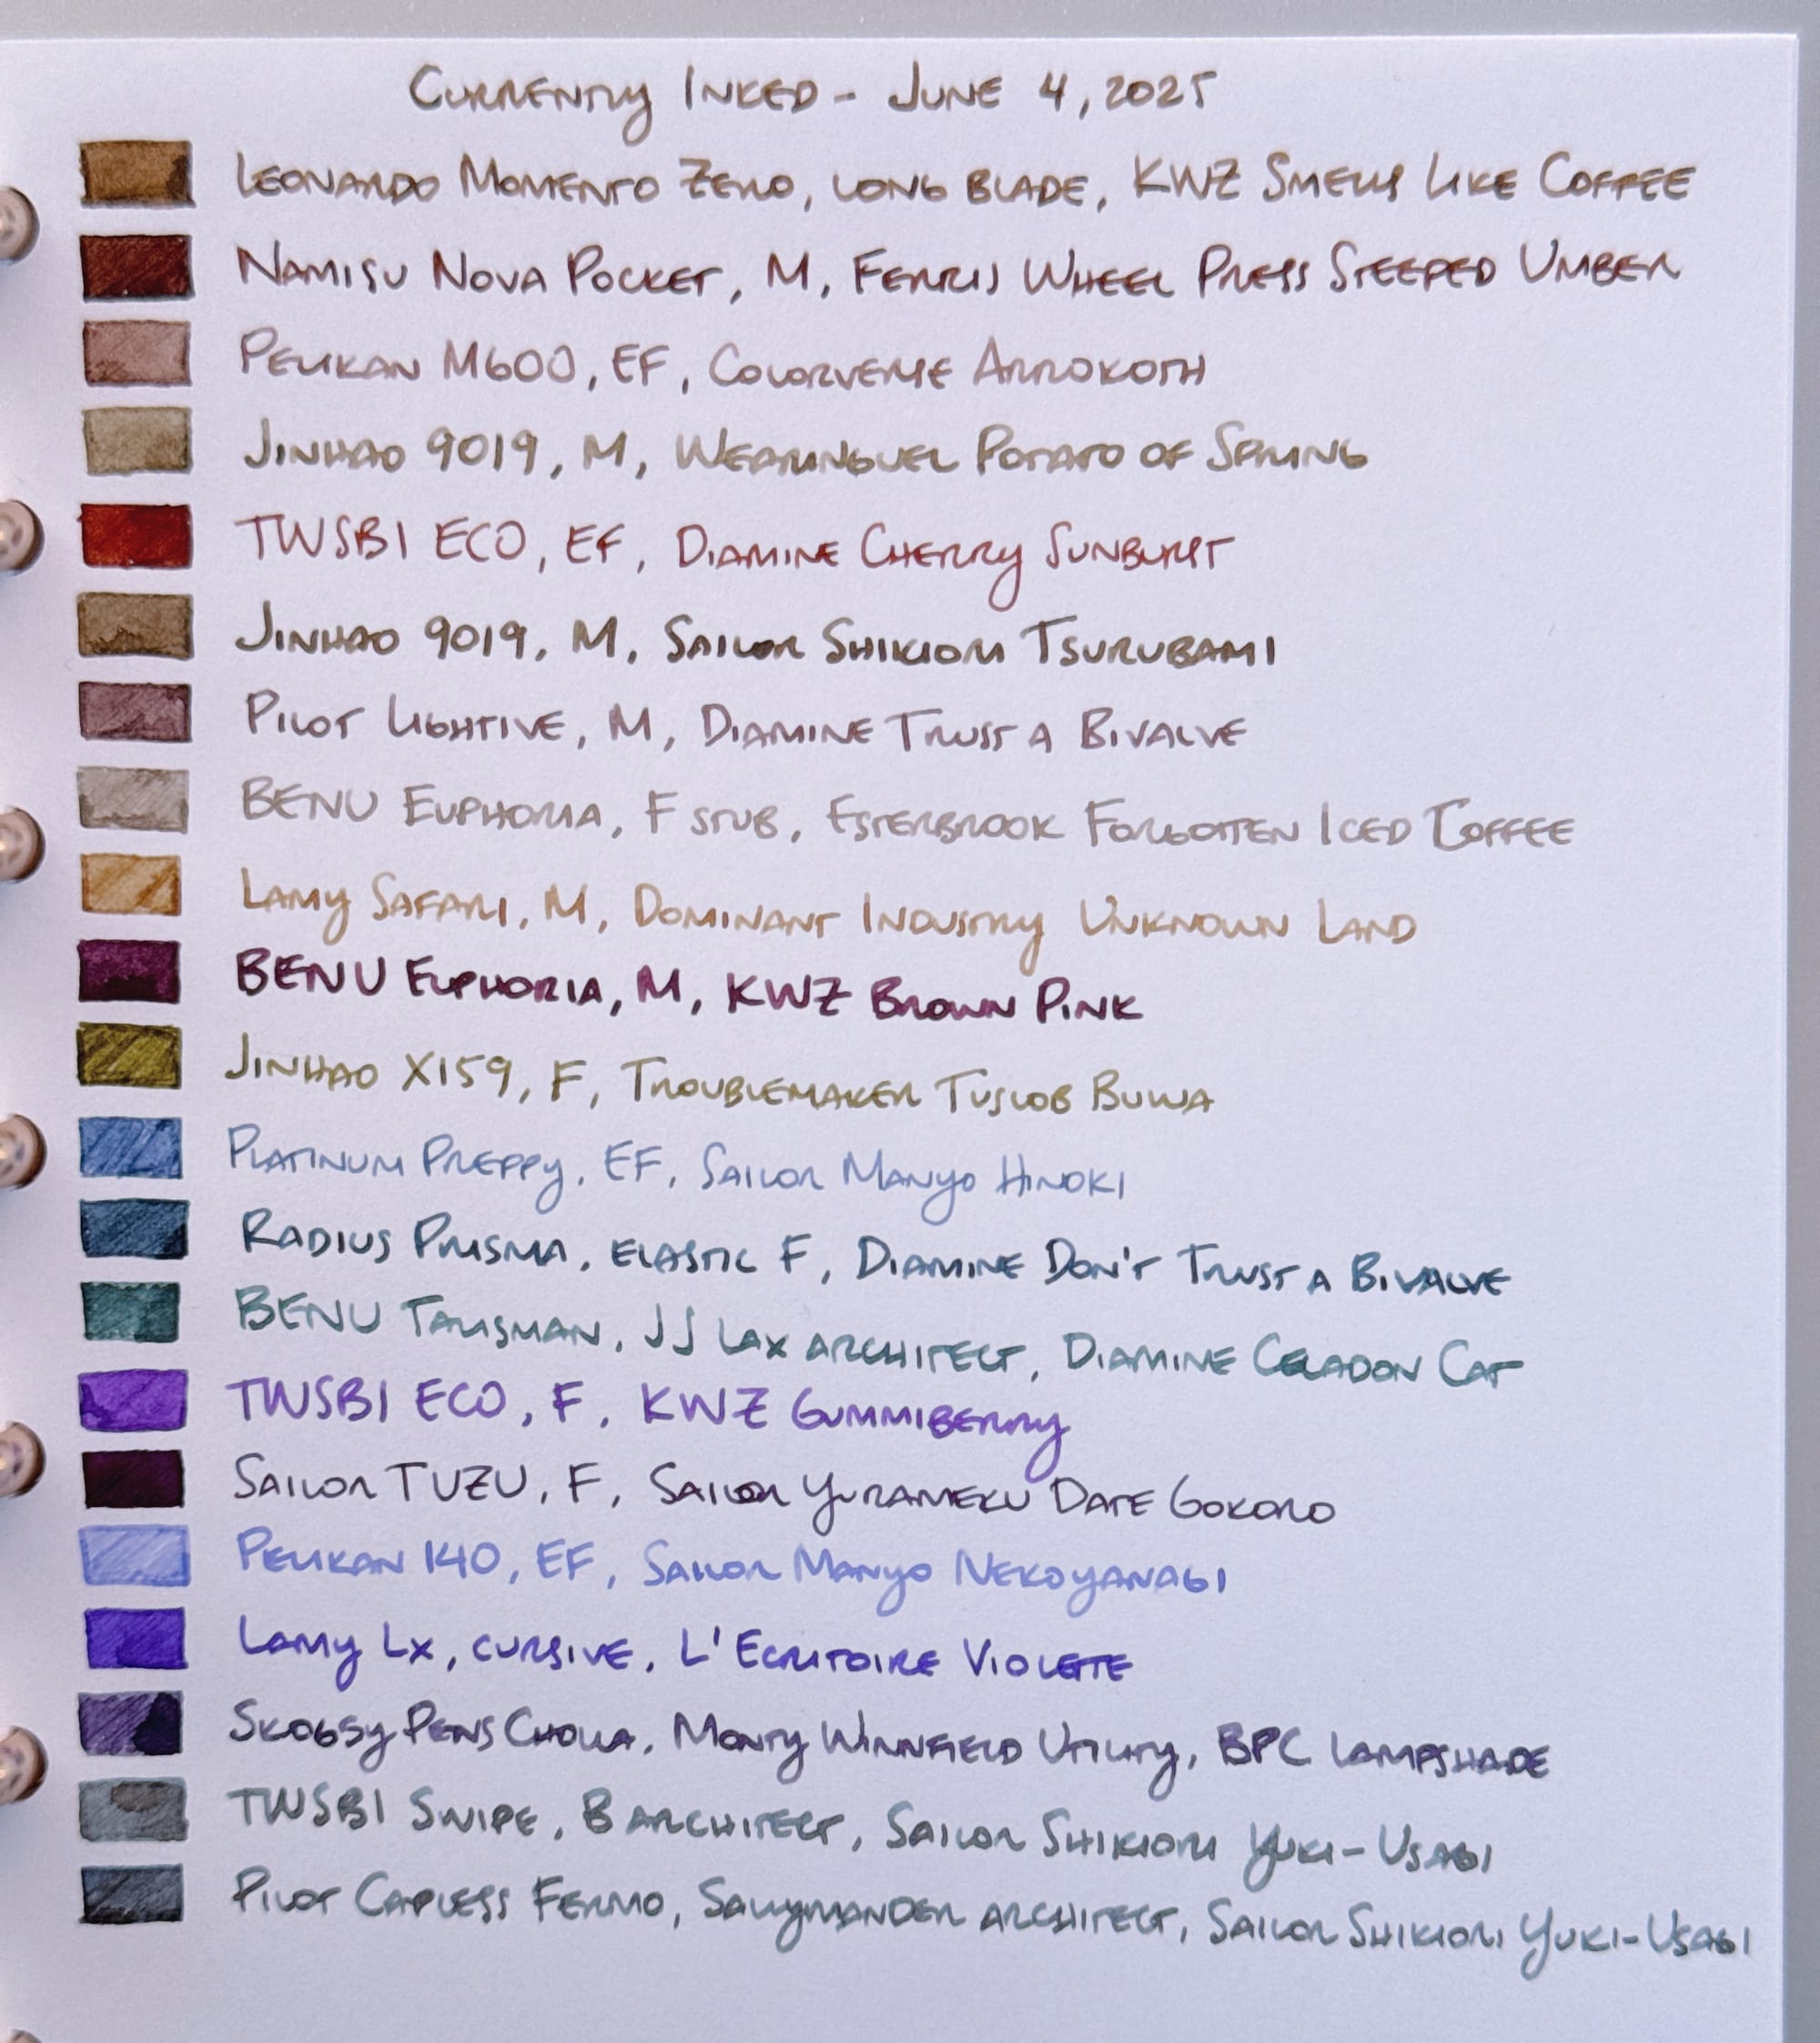 Currently Inked - June 4, 2025
Leonardo Momento Zero, long blade, KWZ Smells Like Coffee
Namisu Nova Pocket, M, Ferris Wheel Press Steeped Umber
Pelikan M600, EF, Colorverse Arrokoth
Jinhao 9019, M, Wearingeul Potato of Spring
TWSBI ECO, EF, Diamine Cherry Sunburst
Jinhao 9019, M, Sailor Shikiori Tsurubami
Pilot Lightive, M, Diamine Trust a Bivalve
BENU Euphoria, F stub, Esterbrook Forgotten Iced Coffee
Lamy Safari, M, Dominant Industry Unknown Land
BENU Euphoria, M, KWZ Brown Pink
Jinhao X159, F, Troublemaker Tuslob Buwa
Platinum Preppy, EF, Sailor Manyo Hinoki
Radius Prisma, elastic F, Diamine Don't Trust a Bivalve
BENU Talisman, JJ Lax architect, Diamine Celadon Cat
TWSBI ECO, F, KWZ Gummiberry
Sailor TUZU, F, Sailor Yurameku Date Gokoro
Pelikan 140, EF, Sailor Manyo Nekoyanagi
Lamy Lx, cursive, L'Ecritoire Violette
Skogsy Pens Cholla, Monty Winnfield Utility, BPC Lampshade
TWSBI Swipe, B architect, Sailor Shikiori Yuki-Usagi
Pilot Capless Fermo, Salymander architect, Sailor Shikiori Yuki-Usagi